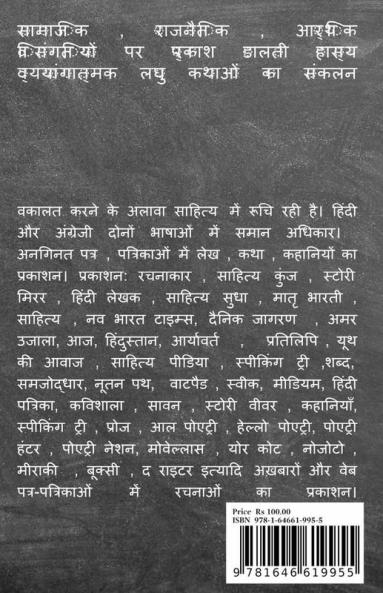 सामाजिक , राजनैतिक , आर्थिक
विसंगतियों पर प्रकाश डालती हास्य
व्ययांगात्मक लघु कथाओं का संकलन
वकालत करने के अलावा साहित्य में रूचि रही है। हिंदी
और अंग्रेजी दोनों भाषाओं में समान अधिकार।
अनगिनत पत्र , पत्रिकाओं में लेख , कथा , कहानियों का
प्रकाशन। प्रकाशन: रचनाकार , साहित्य कुंज , स्टोरी
मिरर , हिंदी लेखक , साहित्य सुधा , मातृ भारती ,
साहित्य , नव भारत टाइम्स, दैनिक जागरण , अमर
उजाला, आज, हिंदुस्तान, आर्यावर्त , प्रतिलिपि , यूथ
की आवाज , साहित्य पीडिया , स्पीकिंग ट्री ,शब्द,
समजोद्धार, नूतन पथ, वाटपैड , स्वीक, मीडियम, हिंदी
पत्रिका, कविशाला , सावन , स्टोरी वीवर , कहानियाँ,
स्पीकिंग ट्री , प्रोज , आल पोएट्री , हेल्लो पोएट्री, पोएट्री
हंटर , पोएट्री नेशन, मोवेल्लास , योर कोट , नोजोटो ,
मीराकी , बूक्सी , द राइटर इत्यादि अख़बारों और वेब
पत्र-पत्रिकाओं में रचनाओं का प्रकाशन।
Price Rs 100.00
ISBN 978-1-64661-995-5
9 781646 619955